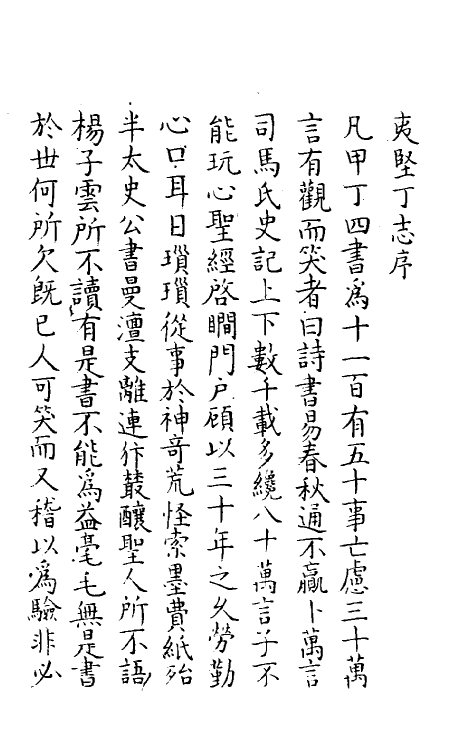 夷堅丁志序
凡甲丁四書爲十一百有五十事亡慮三十萬
言有觀而笑者曰詩書易春秋通不贏卜萬言
司馬氏史記上下數千載多纔八十萬言子不
能玩心聖經啓瞷門户顧以三十年之久勞勤
心口耳目瑣瑣從事於神竒荒怪索墨費紙殆
半太史公書曼澶支離連犿叢釀聖人所不語
楊子雲所不讀有是書不能爲益毫毛無是書
於世何所欠旣已人可笑而又稽以爲驗非必